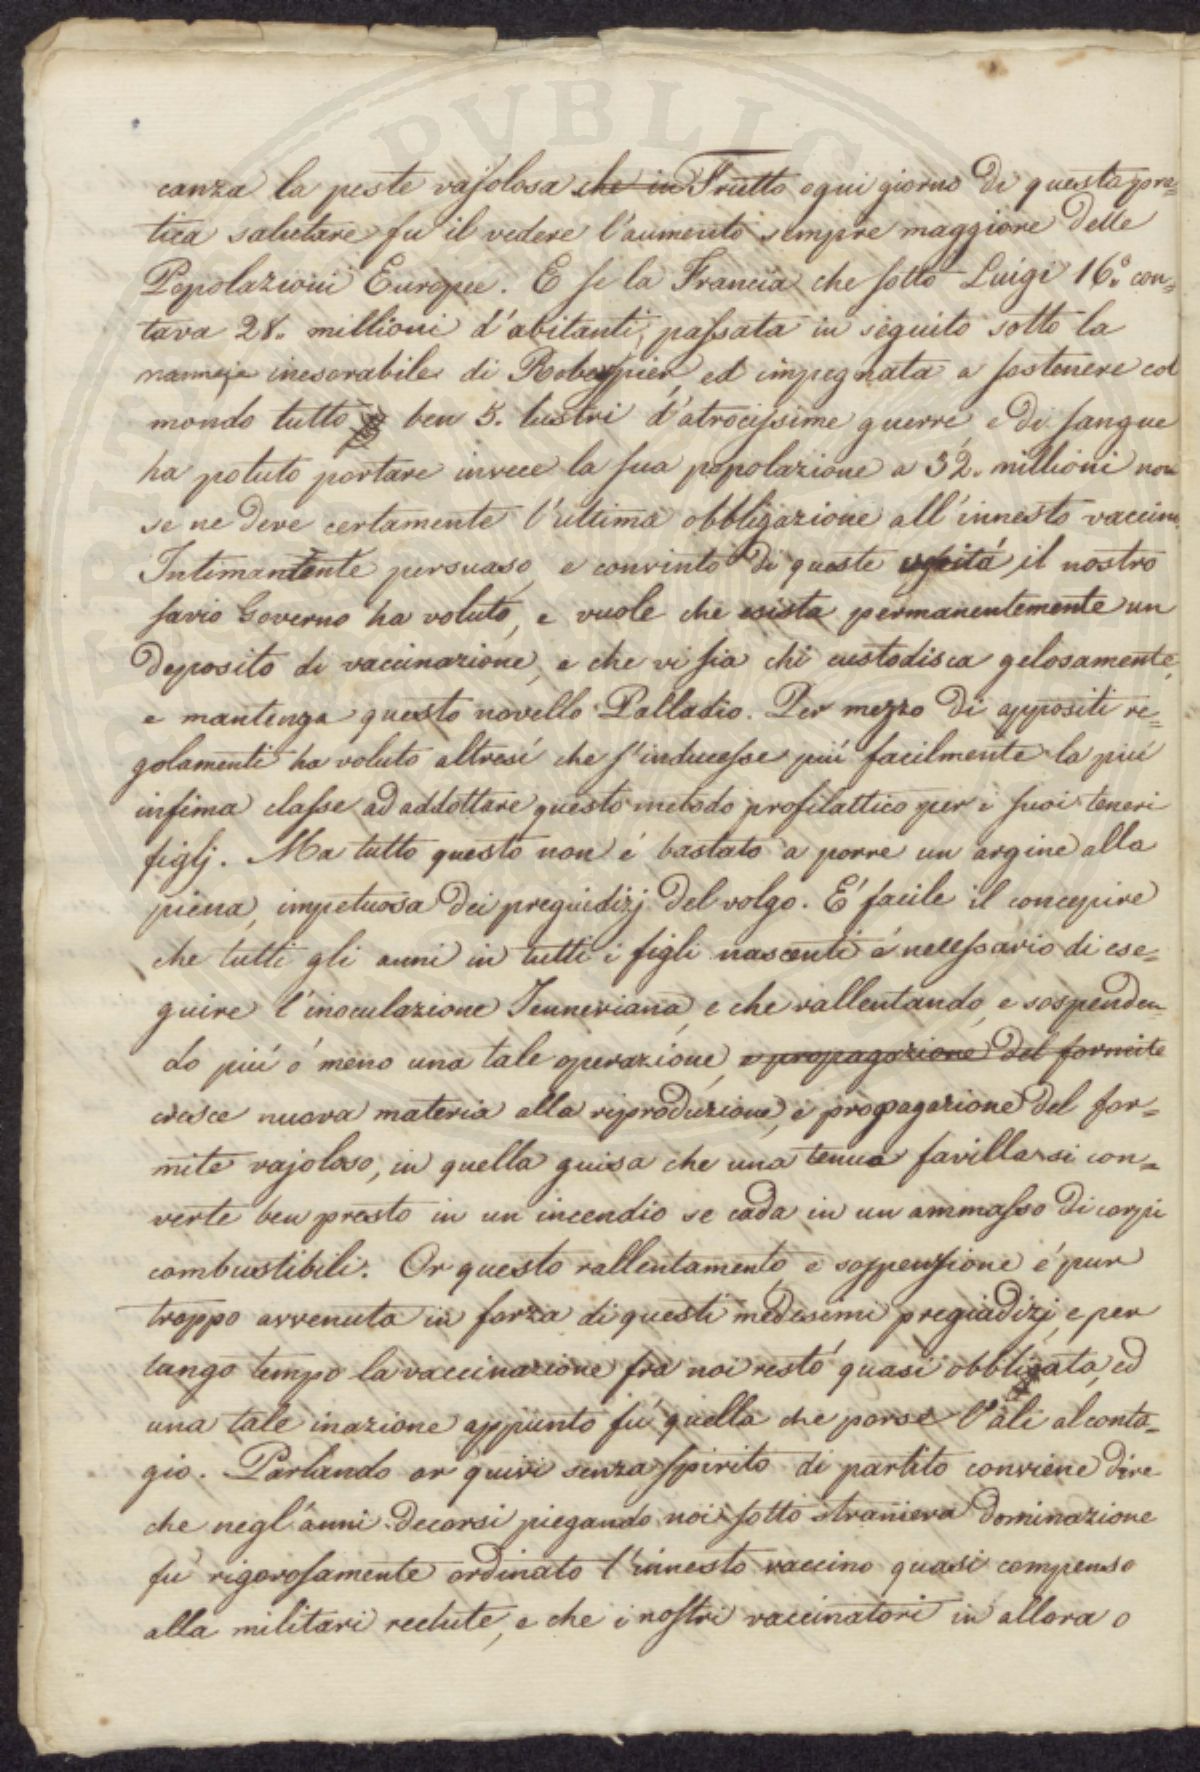 canza la peste vajolosa che in Frutto ogni giorno di questa pra=
tica salutare fu il vedere l'aumento sempre maggiore delle
Popolazioni Europee. E se la Francia che sotto Luigi 16.° con=
tava 28. millioni d'abitanti, passata in seguito sotto la
mannaja inesorabile di Robespier, ed impegnata a sostenere col
mondo tutto ben 5. lustri d'atrocissime guerre e di sangue
ha potuto portare invece la sua popolazione a 32. millioni non
se ne deve certamente l'ultima obbligazione all'innesto vaccino.
Intimantente persuaso, e convinto di queste verità, il nostro
savio Governo ha voluto, e vuole che esista permanentemente un
deposito di vaccinazione, e che vi sia chi custodisca gelosamente,
e mantenga questo novello Palladio. Per mezzo di appositi re=
golamenti ha voluto altresí che s'inducesse piú facilmente la piú
infima classe ad addottare questo metodo profilattico per i suoi teneri
figlj. Ma tutto questo non é bastato a porre un argine alla
piena, impetuosa dei pregiudizj del volgo. É facile il concepire
che tutti gli anni in tutti i figli nascenti é necessario di ese=
guire l'inoculazione Jenneriana, e che rallentando, e sospenden
do piú ó meno una tale operazione, e propagazione del formite
cresce nuova materia alla riproduzione, e propagazione del for=
mite vajoloso, in quella guisa che una tenue favilla si con=
verte ben presto in un incendio se cada in un ammasso di corpi
combustibili. Or questo rallentamento, e sospensione é pur
troppo avvenuta in forza di questi medesimi pregiudizj, e per
lungo tempo la vaccinazione fra noi restó quasi obbligata, ed
una tale inazione appunto fú quella che porse l'ali al conta=
gio. Parlando or quivi senza spirito di partito conviene dire
che negl'anni decorsi piegando noi sotto straniera dominazione
fú rigorosamente ordinato l'innesto vaccino quasi compenso
alla militari reclute, e che i nostri vaccinatori in allora o